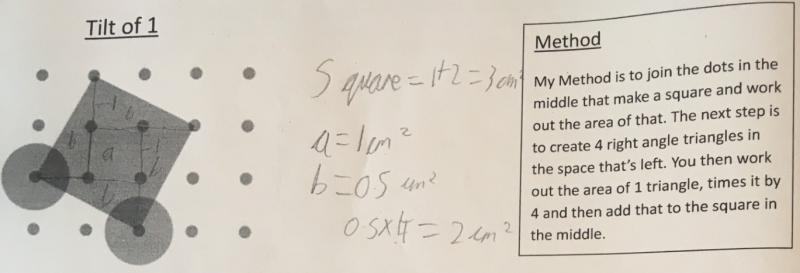 Tilt of 1
b
b
a
b
b
Square = 1+2 = 3cm²
a = 1cm²
b = 0.5 cm²
0.5×4 = 2cm²
Method
My Method is to join the dots in the
middle that make a square and work
out the area of that. The next step is
to create 4 right angle triangles in
the space that's left. You then work
out the area of 1 triangle, times it by
4 and then add that to the square in
the middle.